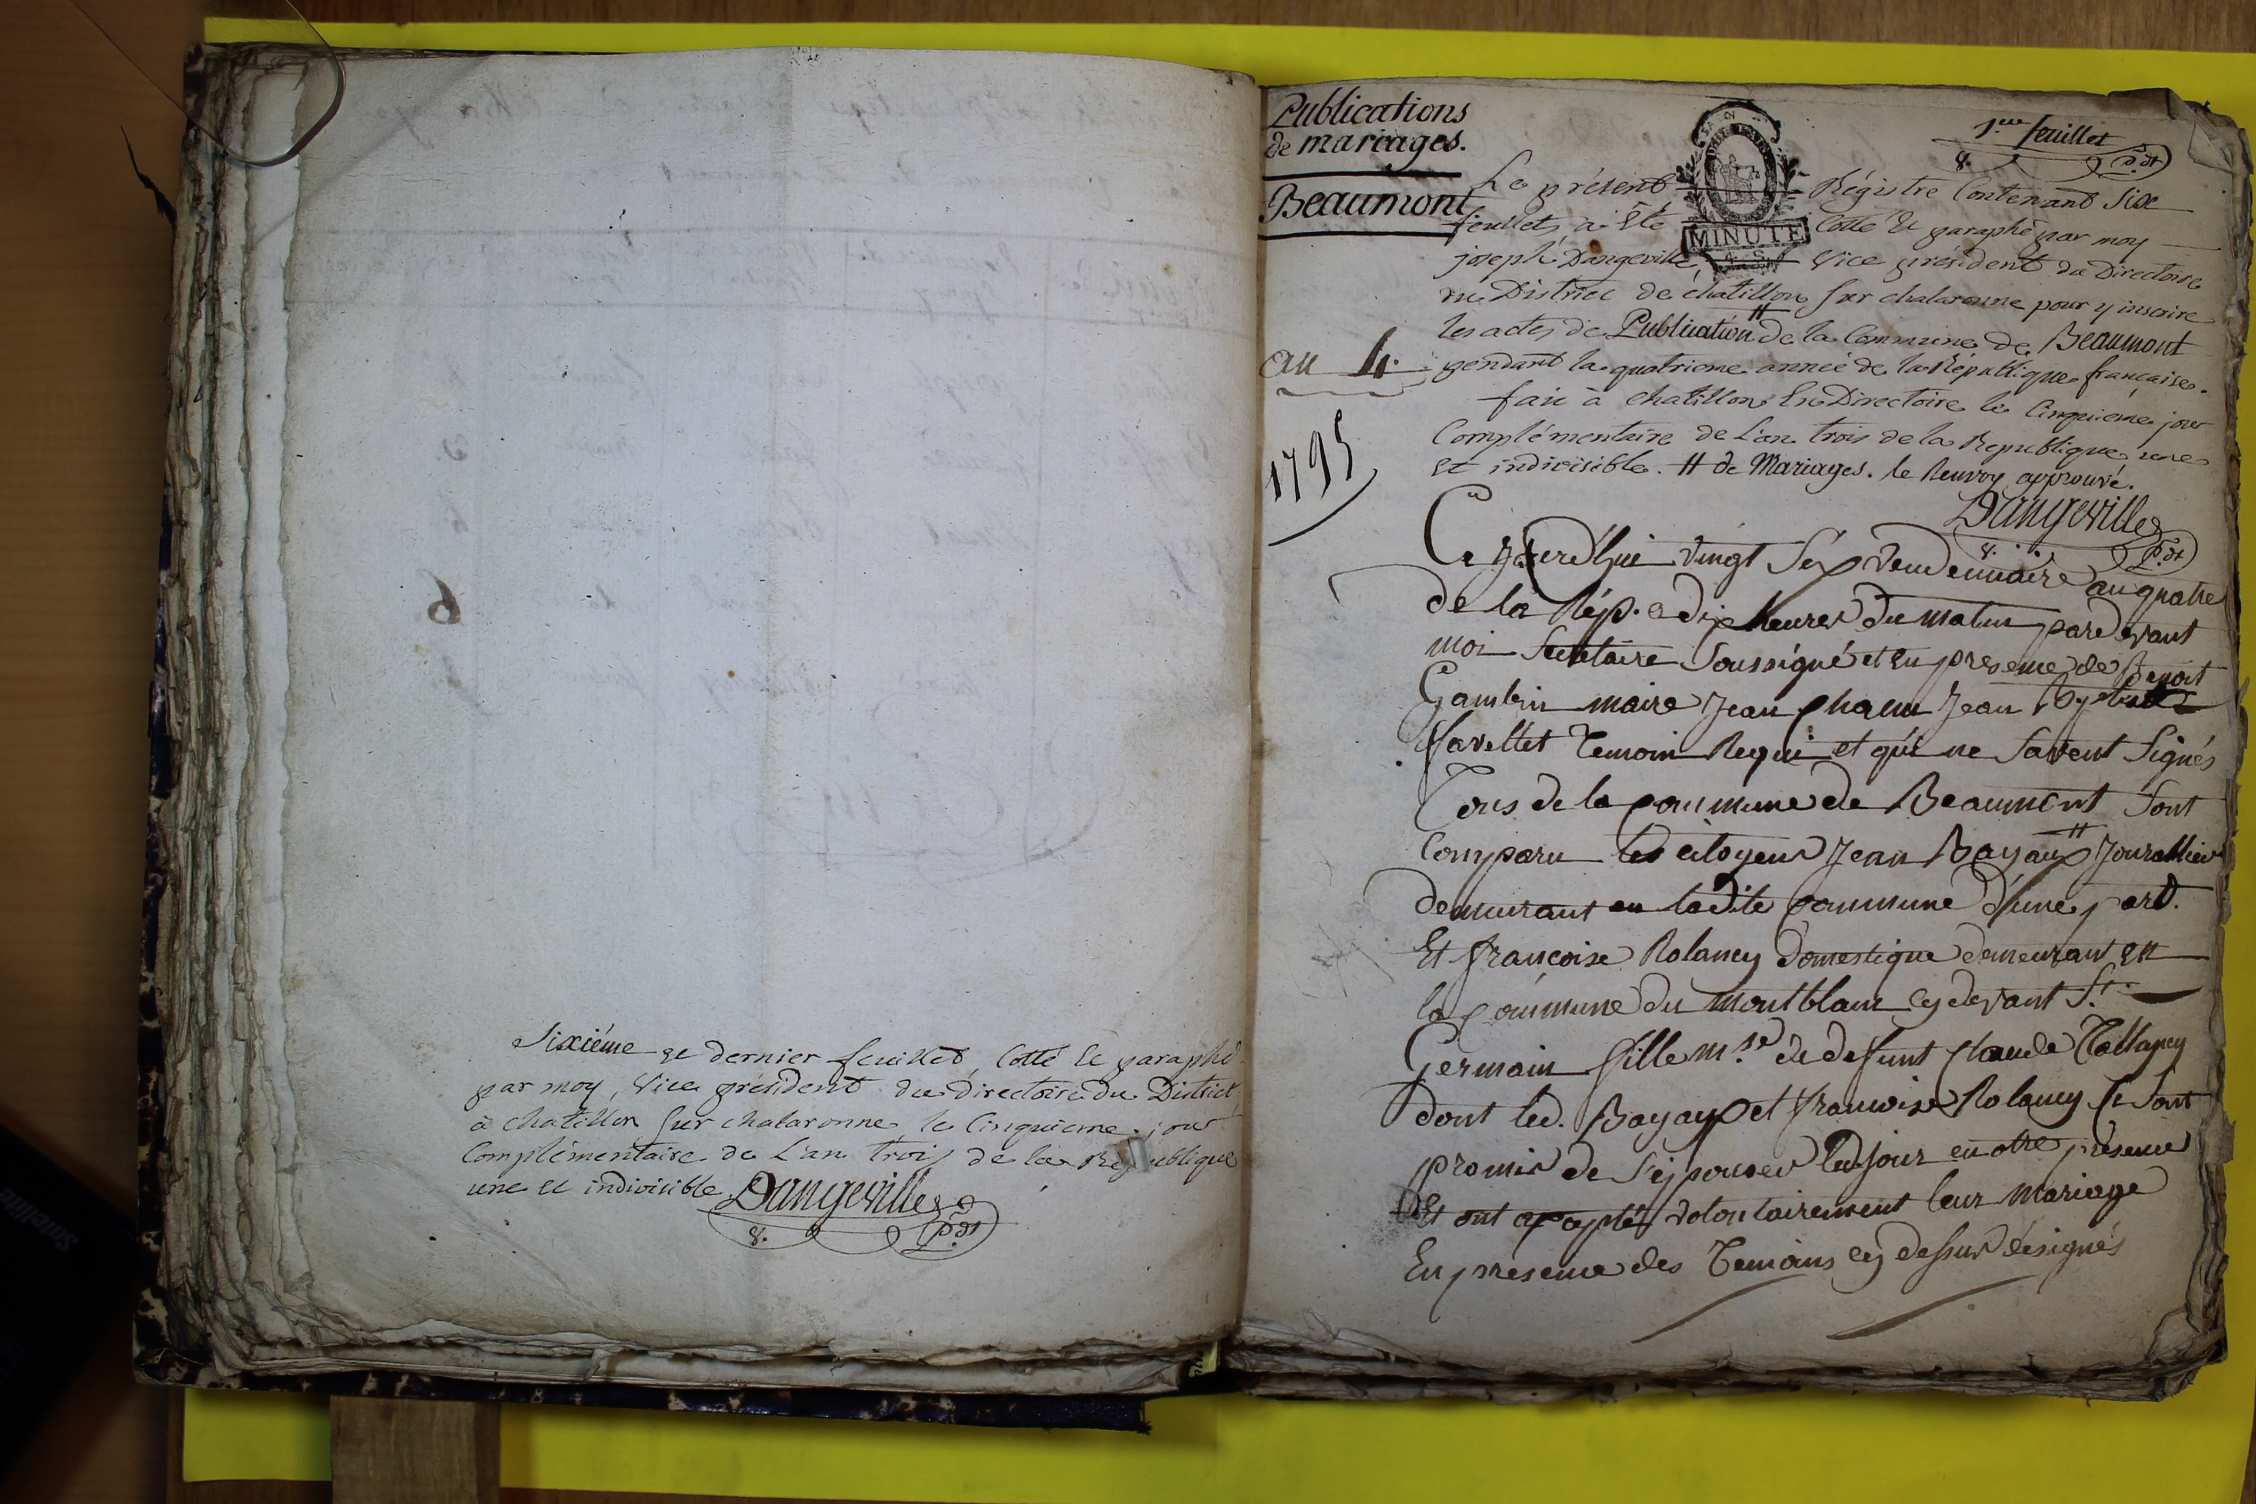 Sixiéme et dernier feuillet, Cotté et paraphé
par moy, Vice président du directoire du District
à chatillon sur chalaronne le Cinquieme jour
Complémentaire de L'an trois de la République
une et indivisible Dangeville
P.dt
Publications
de mariages.
Beaumont
an 4.
1795
1.er feuillet
P.dt
MINUTE
Le présent Régistre Contenant Six
feuillets à été Cotté et paraphé par moy
joseph Dangeville, Vice président du Directoire
du District de chatillon sur chalaronne pour y inscrire
les actes de Publication # de la Commune de Beaumont
pendant la quatrieme année de la République française.
fait à chatillon En Directoire le Cinquieme jour
Complémentaire de L'an trois de la Republique une
et indivisible. # de Mariages. le Renvoy approuvé.
Dangeville
P.dt
Ce Jourd'hui vingt Six vendemiaire an quatre
de la Rép. a dix heures du matin pardevant
moi Secretaire Soussigné et en presence de Benoit
Gambin maire Jean Jean
Favellet Temoin Requi et qui ne Savent Signés
Tous de la Commune de Beaumont Sont
Comparu les citoyens Jean Bayaux # Journallier
demeurant en ladite Commune d'une part.
Et françoise Rolancy Domestique demeurant en
la Commune du montblanc cy devant S.t
Germain fille m.re de defunt Claude
dont led. Bayaux et françoise Rolancy Se Sont
promis de S'epouser led jour en otre presence
Et ont accepté volontairement leur mariage
En presence des Temoins cy dessus désignés